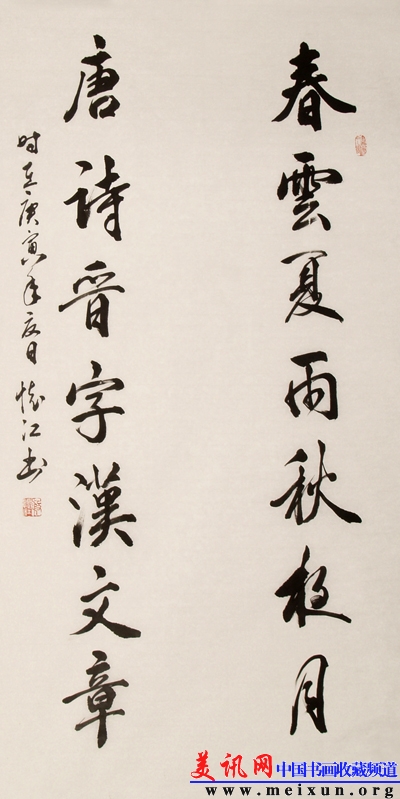 春雲夏雨秋夜月
唐詩晋字漢文章
时在庚寅年夏日 怀江书
美讯网 中国书画收藏频道
www.meixun.org